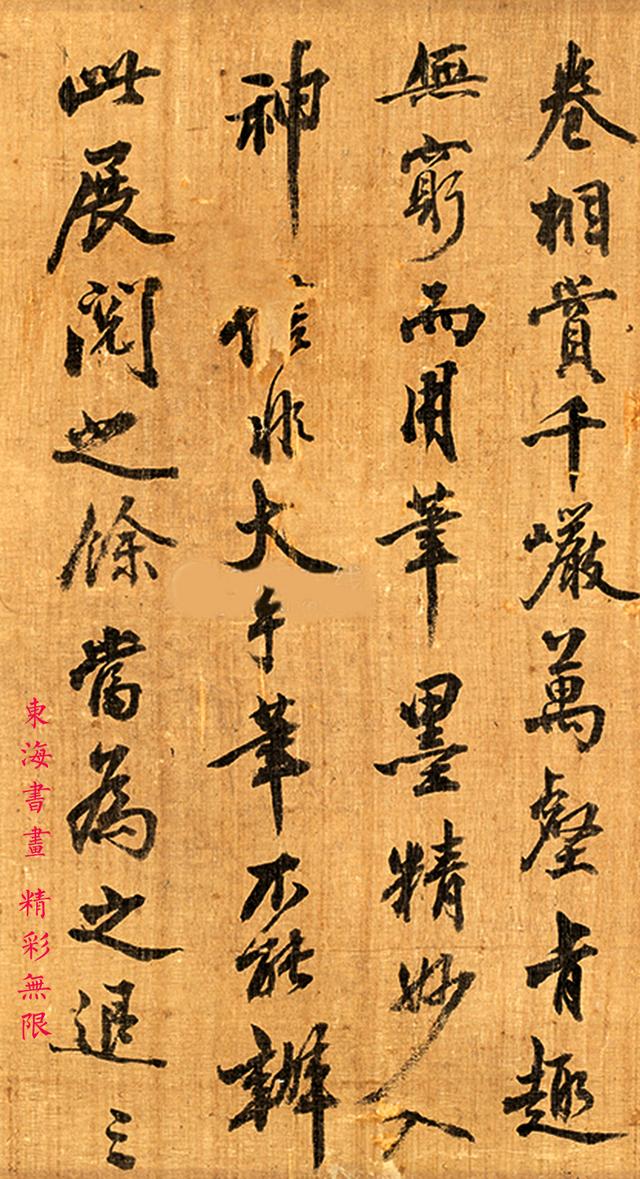 卷相賞千巖萬壑旨趣
無窮而用筆墨精妙入
神信非大手筆不能辦
此展閱之餘當為之退三
東海書畫 精彩無限